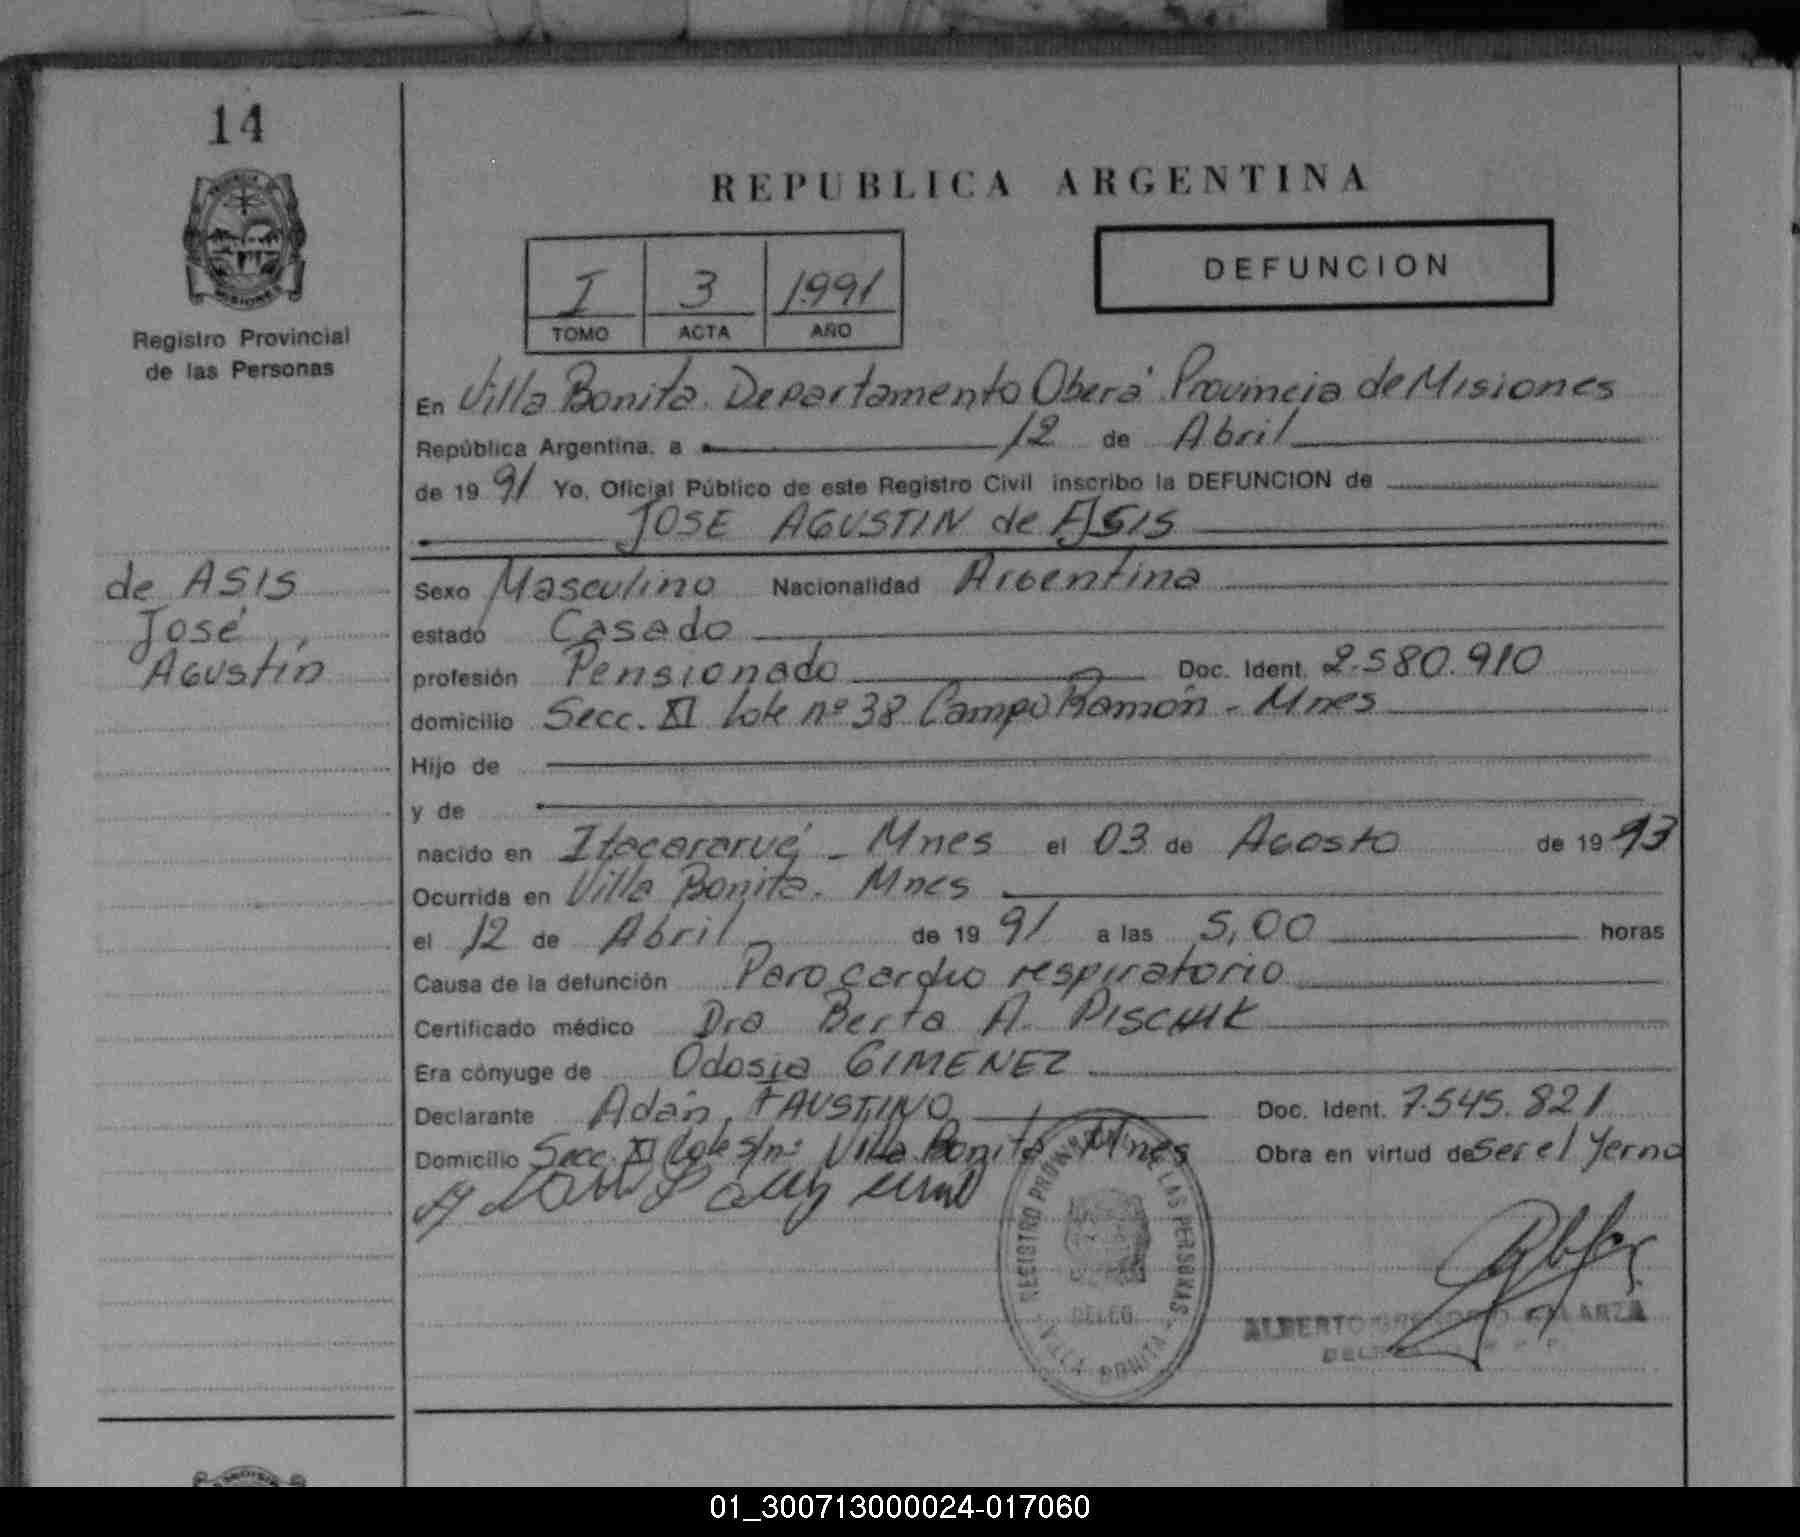 14
Registro Provincial
de las Personas
REPUBLICA ARGENTINA
I 3 1991
TOMO ACTA AÑO
DEFUNCION
En Villa Bonita. Departamento Oberá Provincia de Misiones
República Argentina, a 12 de Abril
de 19 91 Yo, Oficial Público de este Registro Civil inscribo la DEFUNCION de
JOSE AGUSTIN de ASIS
de ASIS
José
Agustín
Sexo Masculino Nacionalidad Argentina
estado Casado
profesión Pensionado Doc. Ident. 2.580.910
domicilio Secc. XI Lote nº 38 Campo Ramón - Mnes
Hijo de
y de
nacido en Itacararué - Mnes el 03 de Agosto de 19 13
Ocurrida en Villa Bonita. Mnes
el 12 de Abril de 19 91 a las 5,00 horas
Causa de la defunción Paro cardio respiratorio
Certificado médico Dra Berta A. PISCHIK
Era cónyuge de Odosia GIMENEZ
Declarante Adán FAUSTINO Doc. Ident. 7.545.821
Domicilio Secc. XI Lote s/nº Villa Bonita Mnes Obra en virtud de ser el Yerno
REGISTRO PROVINCIAL DE LAS PERSONAS
DELEG.
VILLA BONITA
ALBERTO GREGORIO
MISIONES
01_300713000024-017060